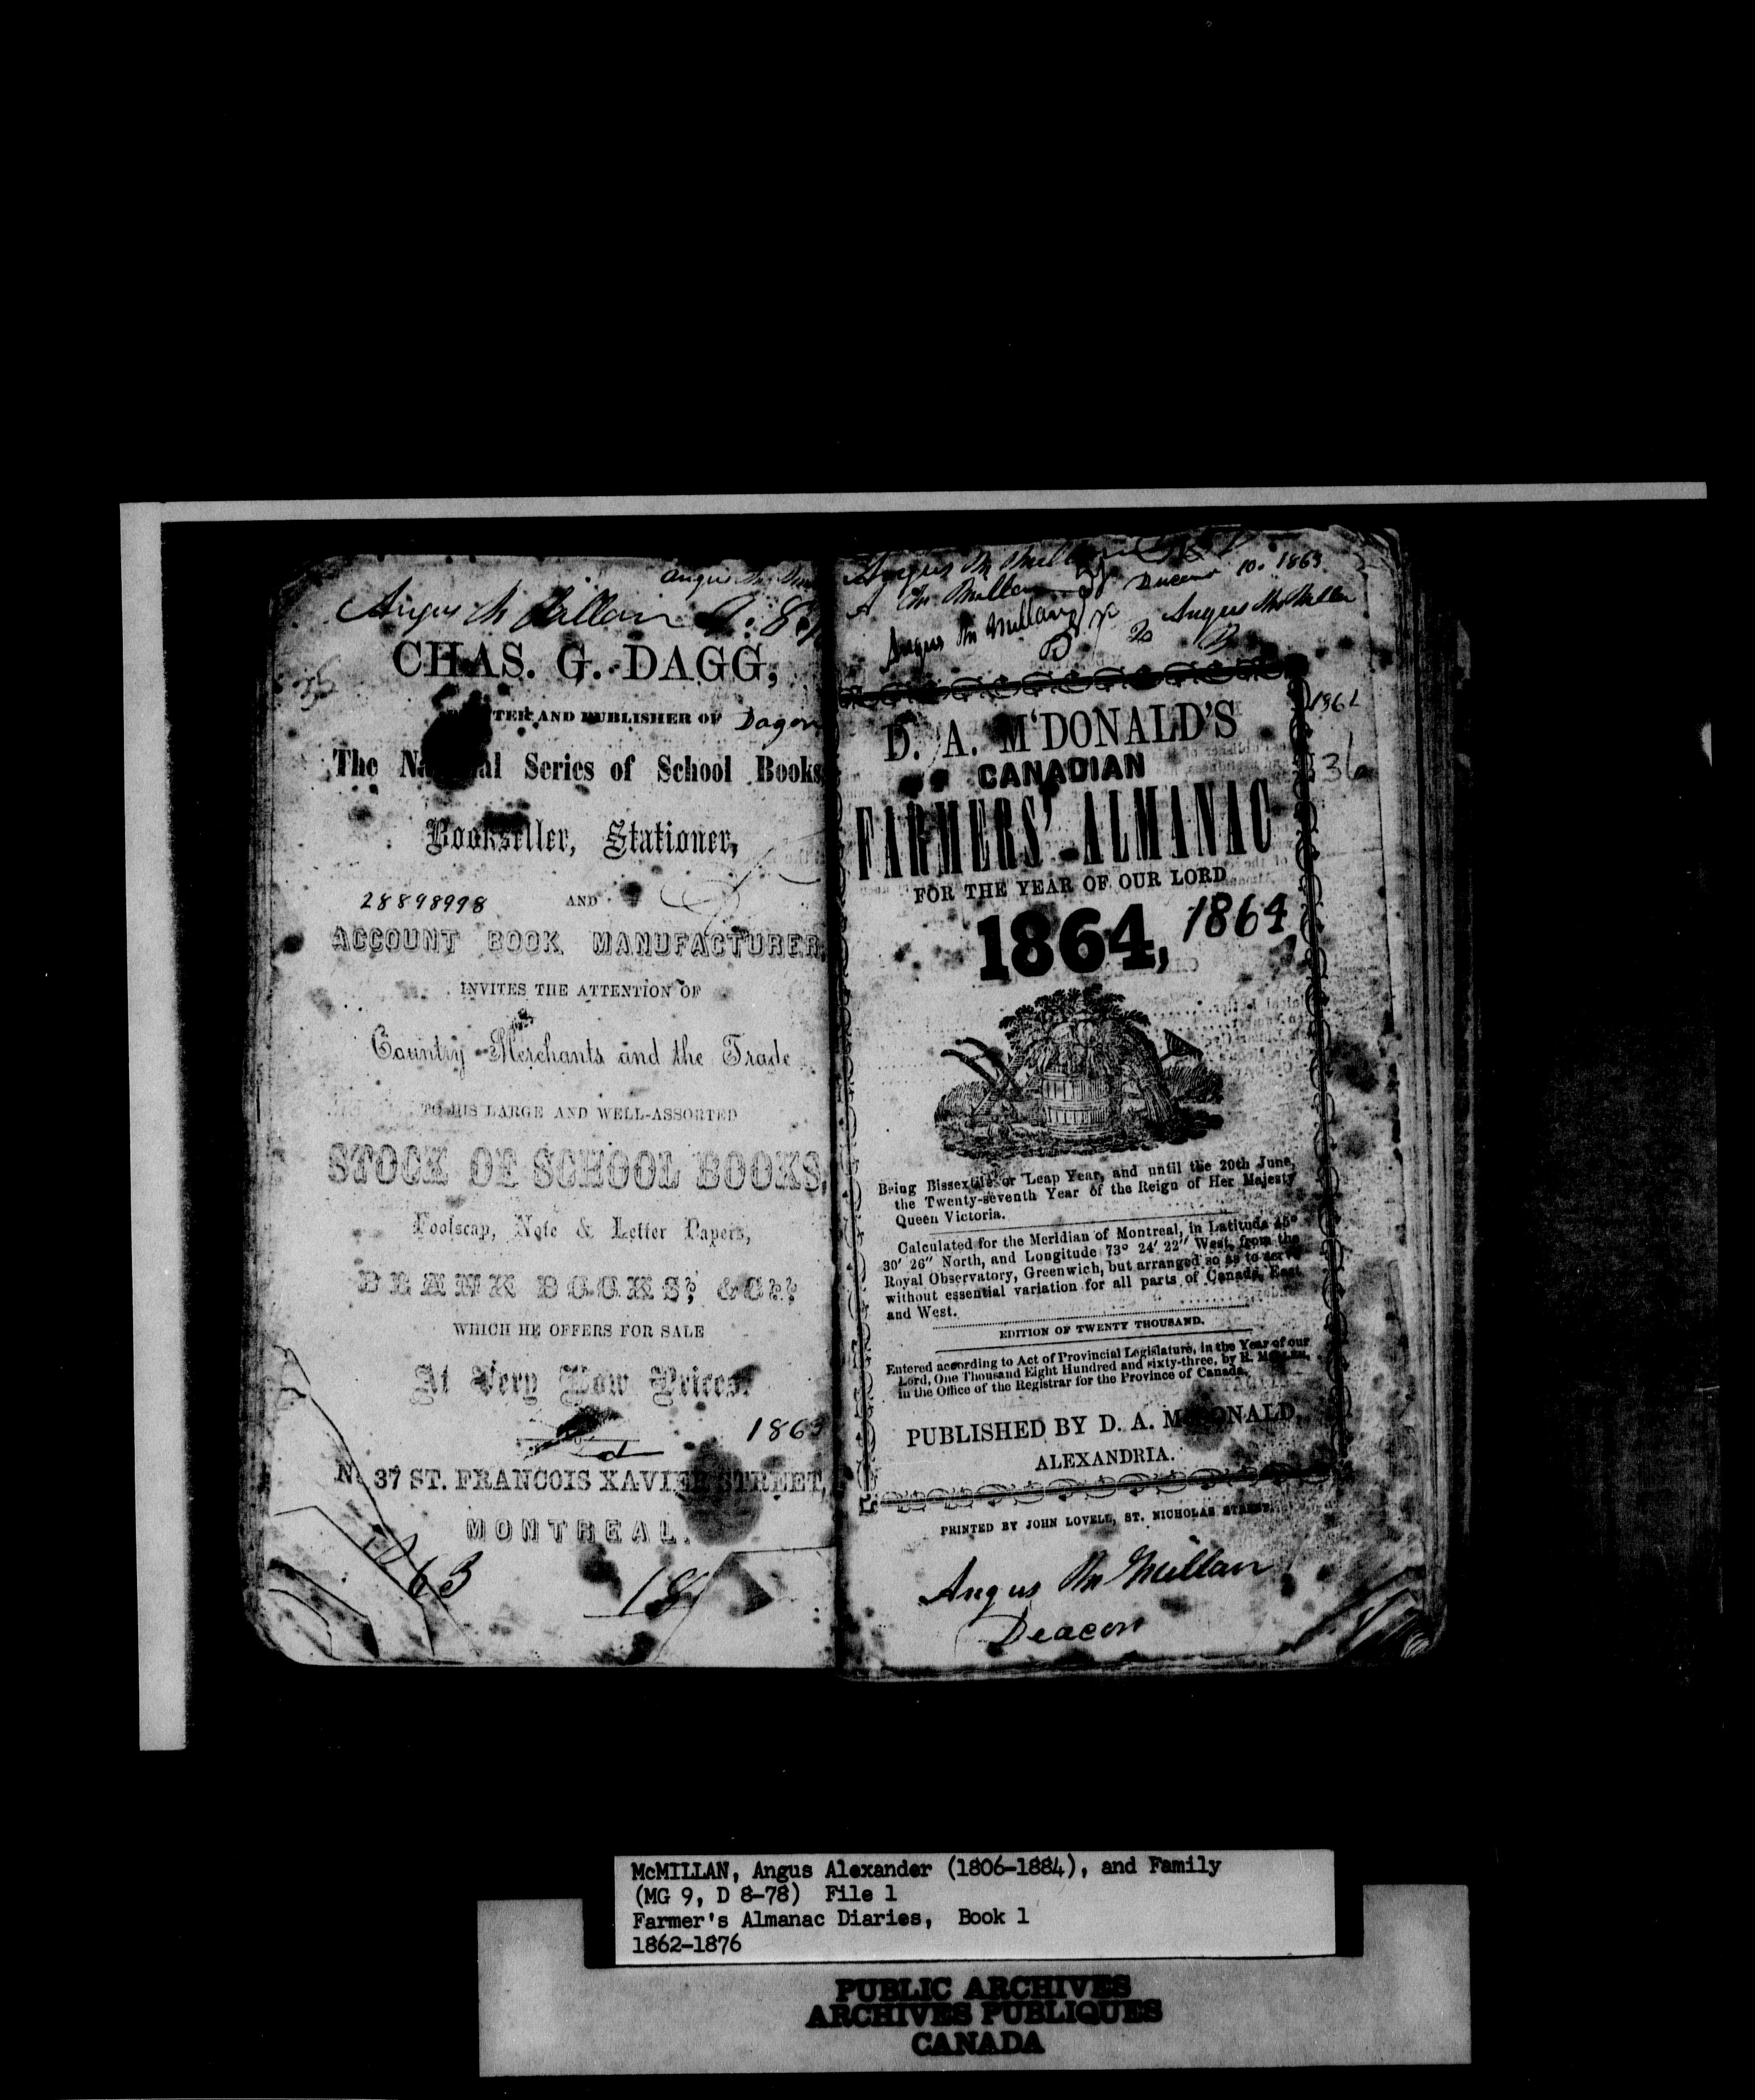 Angus
Angus Mc Millan
35
CHAS. G. DAGG,
AND PUBLISHER OF
The National Series of School Books
Bookseller, Stationer,
28898998
AND
ACCOUNT BOOK MANUFACTURER,
INVITES THE ATTENTION OF
Country Merchants and the Trade
TO HIS LARGE AND WELL-ASSORTED
STOCK OF SCHOOL BOOKS,
Foolscap, Note & Letter Papers,
BLANK BOOKS, &C.,
WHICH HE OFFERS FOR SALE
At Very Low Prices.
1863
No. 37 ST. FRANCOIS XAVIER STREET,
MONTREAL.
1863
18
Angus Mc Millan
A Mc Millan 10. 1863
Angus Mc Millan
Angus McMillan
1862
D. A. M'DONALD'S
CANADIAN
36
FARMERS' ALMANAC
FOR THE YEAR OF OUR LORD
1864, 1864
Being Bissextile or Leap Year, and until the 20th June,
the Twenty-seventh Year of the Reign of Her Majesty
Queen Victoria.
Calculated for the Meridian of Montreal, in Latitude 45°
30' 26" North, and Longitude 73° 24' 22" West, from the
Royal Observatory, Greenwich, but arranged so as to serve
without essential variation for all parts of Canada, East
and West.
EDITION OF TWENTY THOUSAND.
Entered according to Act of Provincial Legislature, in the Year of our
Lord, One Thousand Eight Hundred and sixty-three, by R. MILLER,
in the Office of the Registrar for the Province of Canada.
PUBLISHED BY D. A. McDONALD,
ALEXANDRIA.
PRINTED BY JOHN LOVELL, ST. NICHOLAS STREET.
Angus Mc Millan
Deacon
McMILLAN, Angus Alexander (1806-1884), and Family
(MG 9, D 8-78) File 1
Farmer's Almanac Diaries, Book 1
1862-1876
PUBLIC ARCHIVES
ARCHIVES PUBLIQUES
CANADA